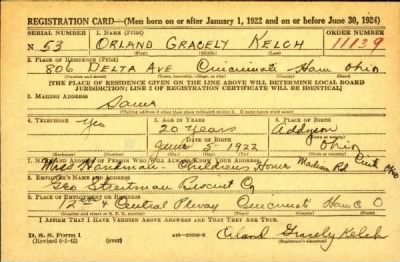 REGISTRATION CARD—(Men born on or after January 1, 1922 and on or before June 30, 1924)
SERIAL NUMBER 1. NAME (Print) ORDER NUMBER
N. 53 ORLAND GRACELY KELCH 11139
2. PLACE OF RESIDENCE (Print)
806 DELTA AVE Cincinnati Ham Ohio
[THE PLACE OF RESIDENCE GIVEN ON THE LINE ABOVE WILL DETERMINE LOCAL BOARD
JURISDICTION; LINE 2 OF REGISTRATION CERTIFICATE WILL BE IDENTICAL]
3. MAILING ADDRESS
Same
4. TELEPHONE 5. AGE IN YEARS 6. PLACE OF BIRTH
Yes 20 Years Addyson
DATE OF BIRTH
June 5 - 1922 Ohio
7. NAME AND ADDRESS OF PERSON WHO WILL ALWAYS KNOW YOUR ADDRESS
Childrens Home Madison Rd Cinti Ohio
8. EMPLOYER'S NAME AND ADDRESS
Geo Streitman Biscuit Co
9. PLACE OF EMPLOYMENT OR BUSINESS
12th & Central Pkway Cincinnati Ham C O
I AFFIRM THAT I HAVE VERIFIED ABOVE ANSWERS AND THAT THEY ARE TRUE.
D. S. S. Form 1
(Revised 6-1-42) (over) Orland Gracely Kelch